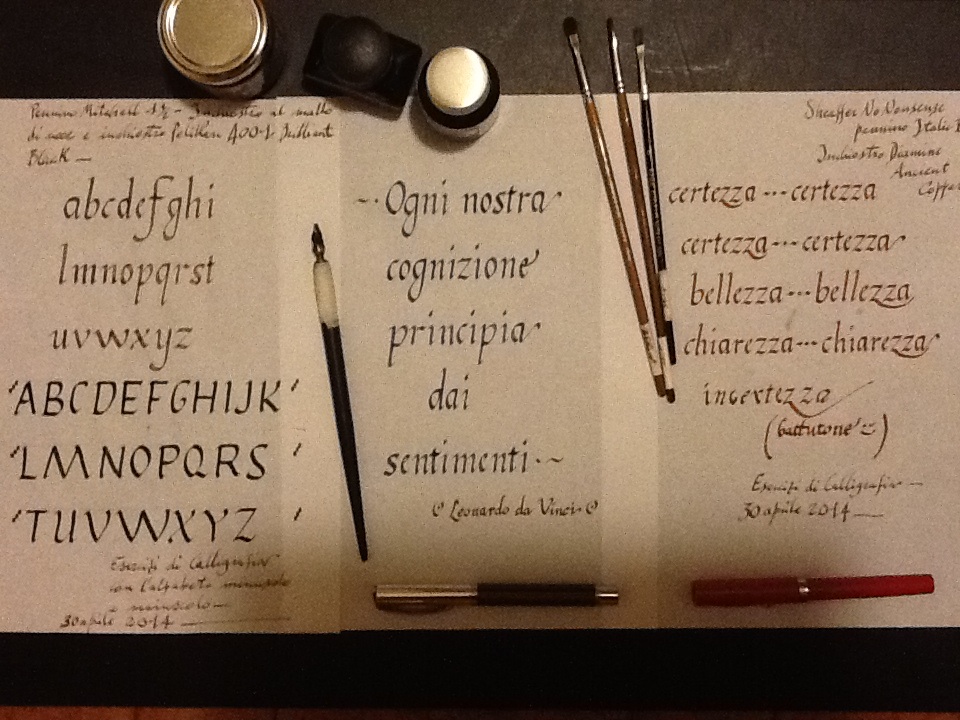 Pennino Mitchell 4½ - Inchiostro al mallo
di noce e inchiostro Pelikan 4001 Brilliant
Black —
abcdefghi
lmnopqrst
uvwxyz
'ABCDEFGHIJK'
'LMNOPQRS'
'TUVWXYZ'
Esercizi di Calligrafia
con l'alfabeto minuscolo
e maiuscolo
30 aprile 2014
-·Ogni nostra
cognizione
principia
dai
sentimenti·~
Leonardo da Vinci
Sheaffer No Nonsense
pennino Italic
Inchiostro Diamine
Ancient
Coppe
certezza---certezza
certezza---certezza
bellezza---bellezza
chiarezza---chiarezza
incertezza
(battutone)
Esercizi di Calligrafia —
30 aprile 2014